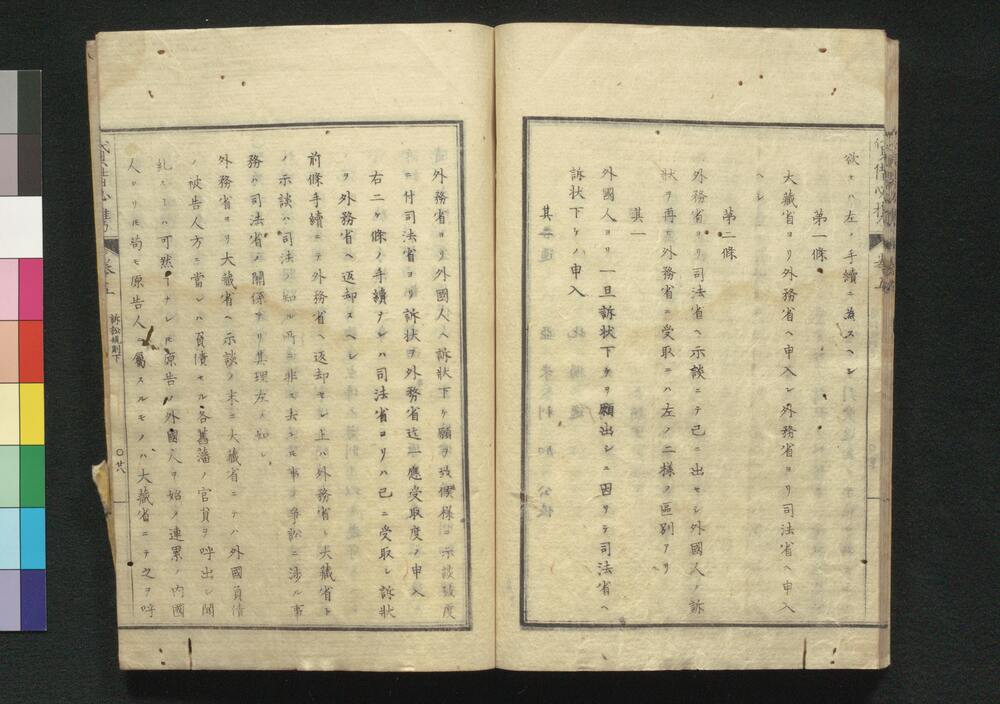 欲セハ左ノ手續ニ為スヘシ
第一條
大藏省ヨリ外務省ヘ申入レ外務省ヨリ司法省ヘ申入
ヘシ
第二條
外務省ヨリ司法省ヘ示談ニテ已ニ出セシ外國人ノ訴
狀ヲ再ヒ外務省ニ受取ニハ左ノ二樣ノ區別アリ
其一
外國人ヨリ一旦訴狀下ケヲ願出シニ因リテ司法省ヘ
訴狀下ケノ申入
外務省ヨリ外國人ヘ訴狀下ケ願ヲ致候樣ニ示談致度
ニ付司法省ヨリ訴狀ヲ外務省迄一應受取度ノ申入
右二ケ條ノ手續ナレハ司法省ヨリハ已ニ受取シ訴狀
ヲ外務省ヘ返却スヘシ
前條手續ニテ外務省ヘ返却セシ上ハ外務省ト大藏省ト
ノ示談ハ司法ノ知ル所ニ非ス去レ𪜈事ノ爭訟ニ涉ル事
務ハ司法省ノ關係ナリ其理左ノ如シ
外務省ヨリ大藏省ヘ示談ノ末ニ大藏省ニテハ外國負債
ノ被告人方ニ當レハ負債セル各舊藩ノ官員ヲ呼出シ聞
糺シハ可然ナレ𪜈原告ハ外國人ヲ始メ連累ノ內國
人ハリ𪜈苟モ原告人ニ屬スルモノハ大藏省ニテ之ヲ呼
訴訟規則下
〇廿八